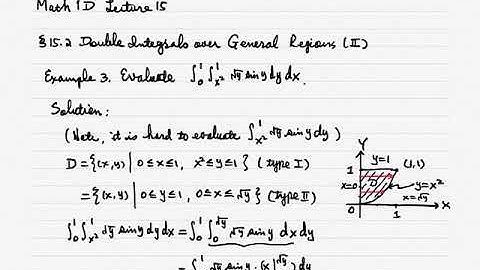 Math 1D Lecture 15
§15.2 Double Integrals over General Regions (II)
Example 3. Evaluate ∫₀¹∫ₓ²¹ √y sin y dy dx.
Solution:
(Note, it is hard to evaluate ∫ₓ²¹ √y sin y dy)
D = {(x,y) | 0≤x≤1, x²≤y≤1} (type I)
= {(x,y) | 0≤y≤1, 0≤x≤√y} (type II)
∫₀¹∫ₓ²¹ √y sin y dy dx = ∫₀¹∫₀^√y √y sin y dx dy
= ∫₀¹ √y sin y · (x|₀^√y) dy
Y
y=1
(1,1)
1
x=0
D
y=x²
x=√y
0
1
X